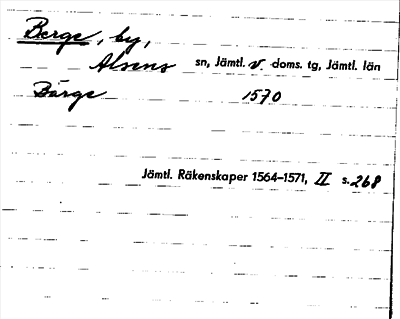 Berge, by,
Alsens sn, Jämtl. v. doms. tg, Jämtl. län
Bärge 1570
Jämtl. Räkenskaper 1564–1571, II s. 268